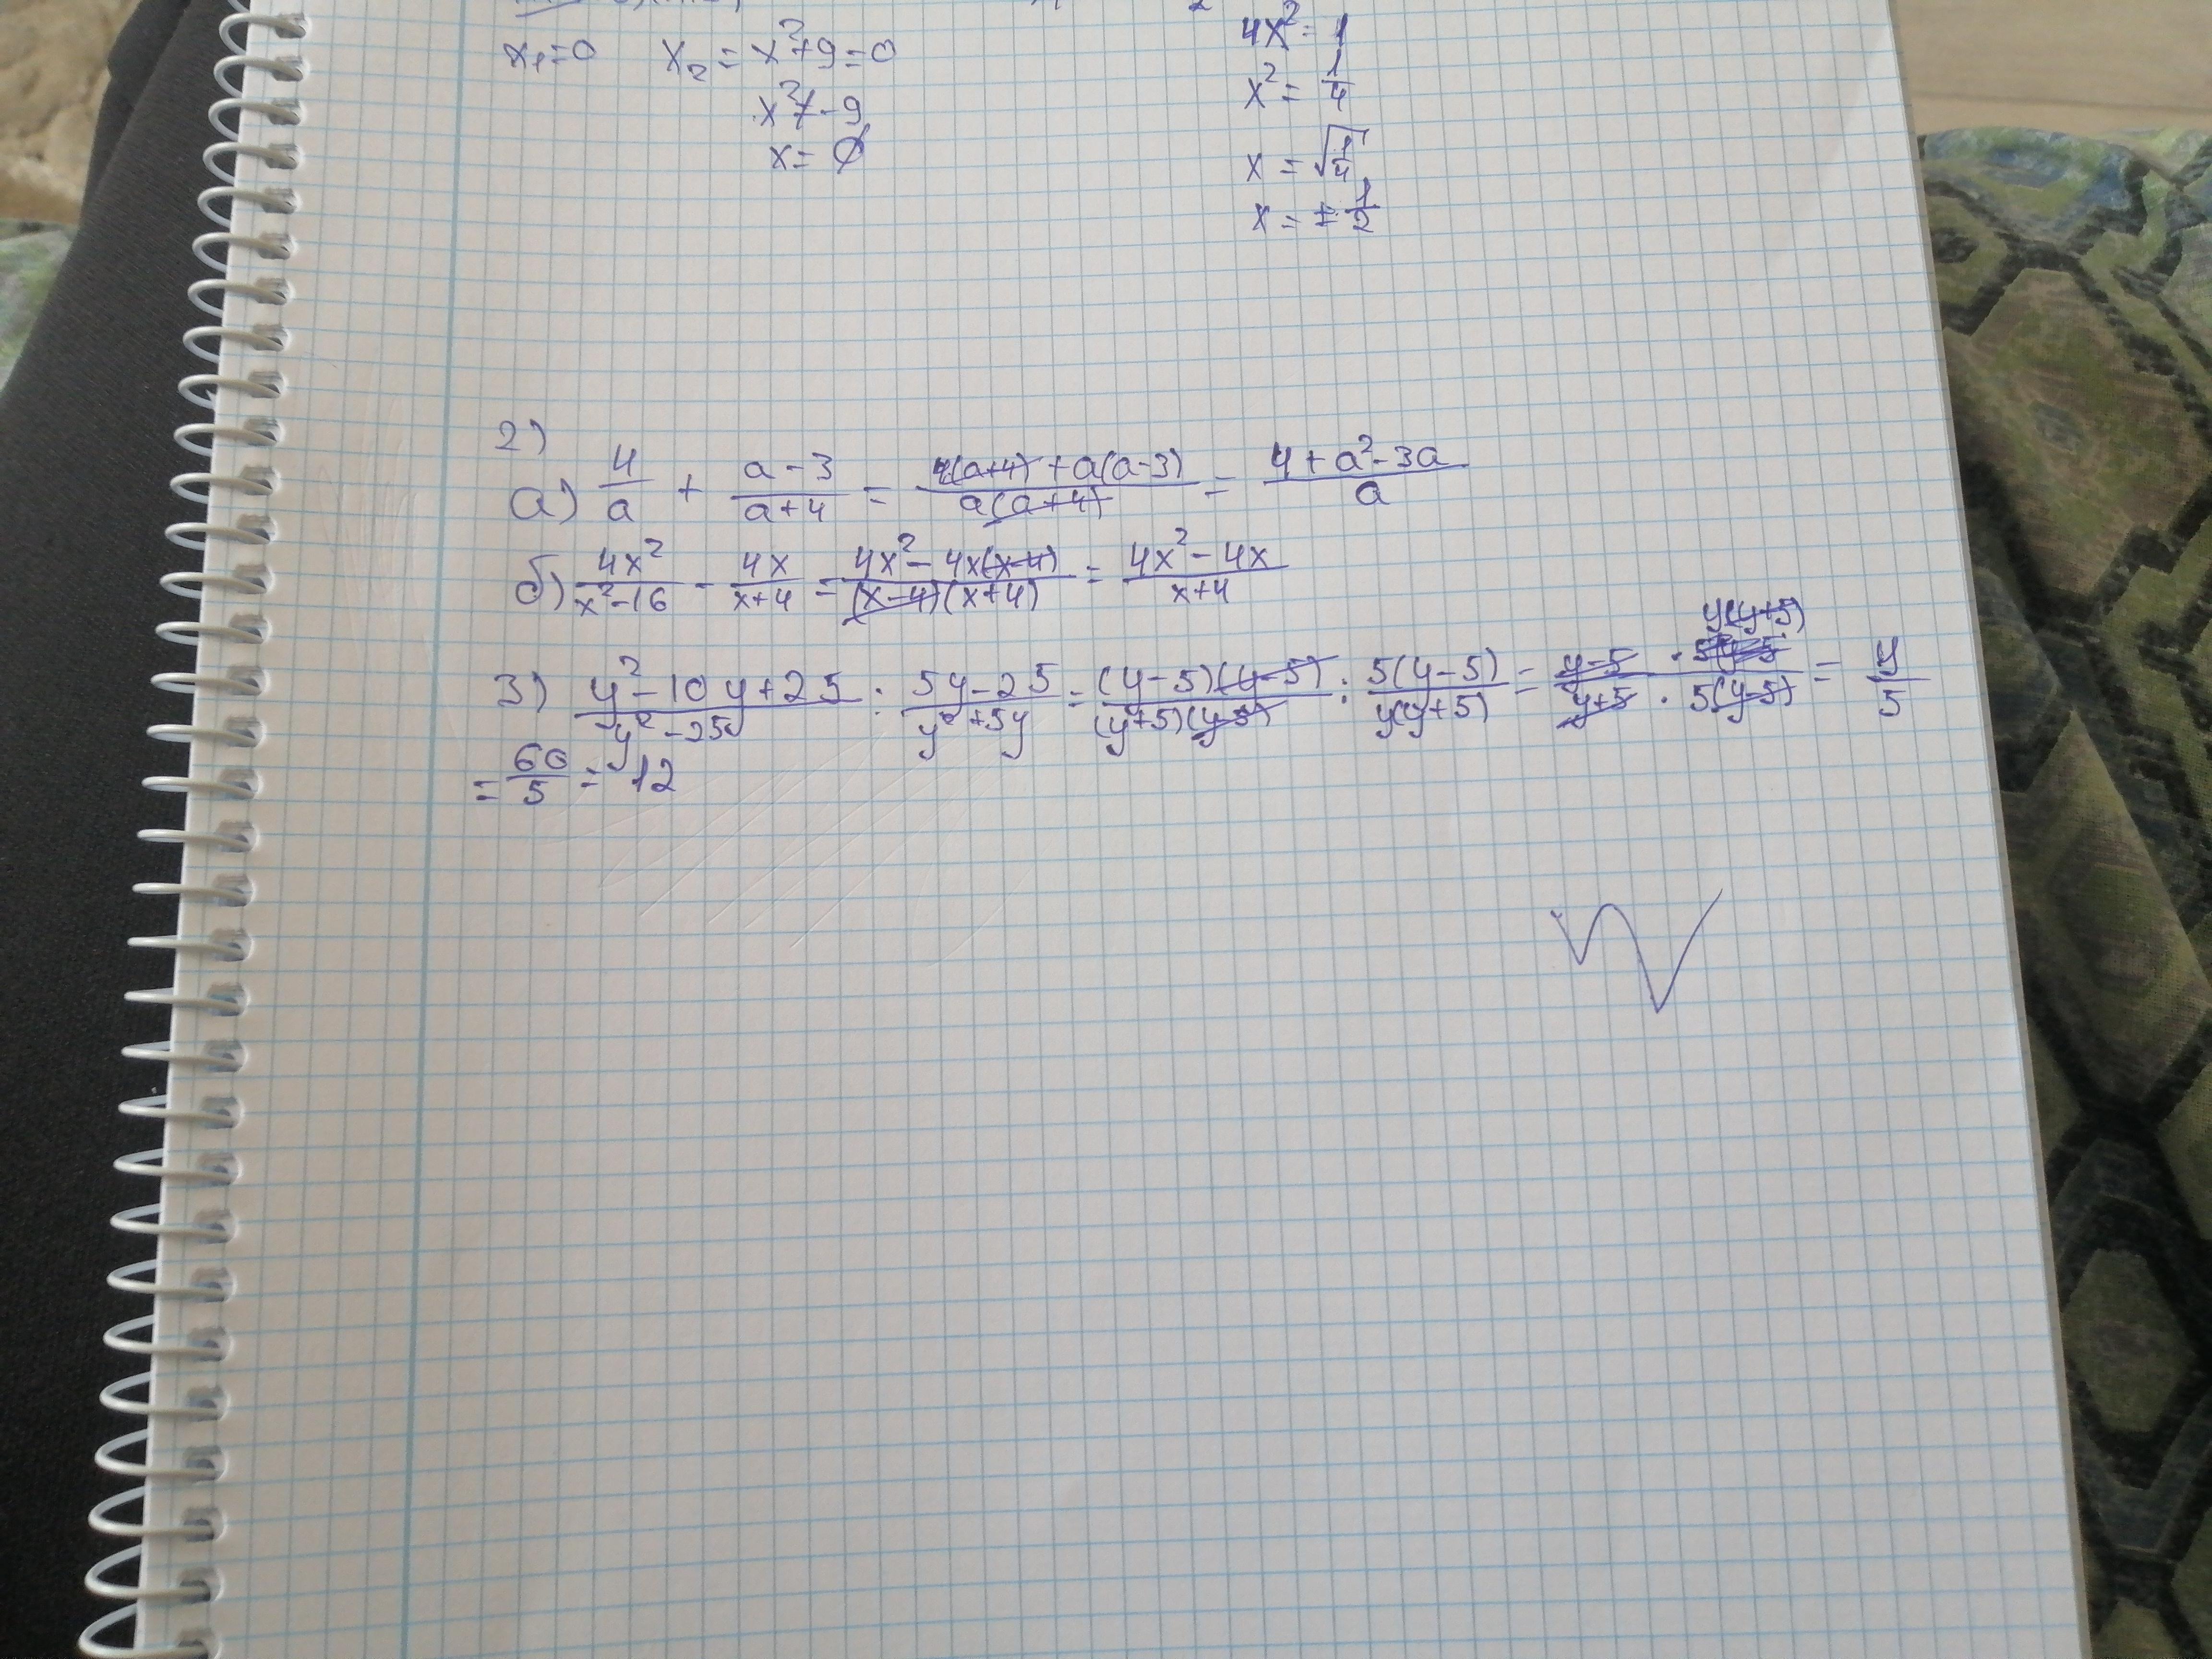 x₁=0 x₂ = x²+9=0
x²≠-9
x= ∅
4x²= 1
x² = 1/4
x = √(1/4)
x = ± 1/2
2)
а) 4/a + (a-3)/(a+4) = (4(a+4)+a(a-3))/(a(a+4)) = (4+a²-3a)/a
б) 4x²/(x²-16) - 4x/(x+4) = (4x²-4x(x-4))/((x-4)(x+4)) = (4x²-4x)/(x+4)
3) (y²-10y+25)/(y²-25) : (5y-25)/(y²+5y) = ((y-5)(y-5))/((y+5)(y-5)) : 5(y-5)/(y(y+5)) = (y-5 · y(y+5))/(y+5 · 5(y-5)) = y/5
= 60/5 = 12